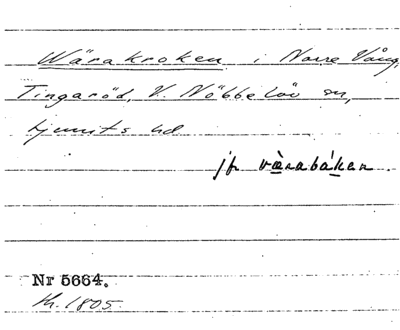 Wärakroken i Norre Vång,
Tingaröd, V. Nöbbelöv sn,
Ljunits hd
jfr värabáken.
Nr 5664.
th. 1805.